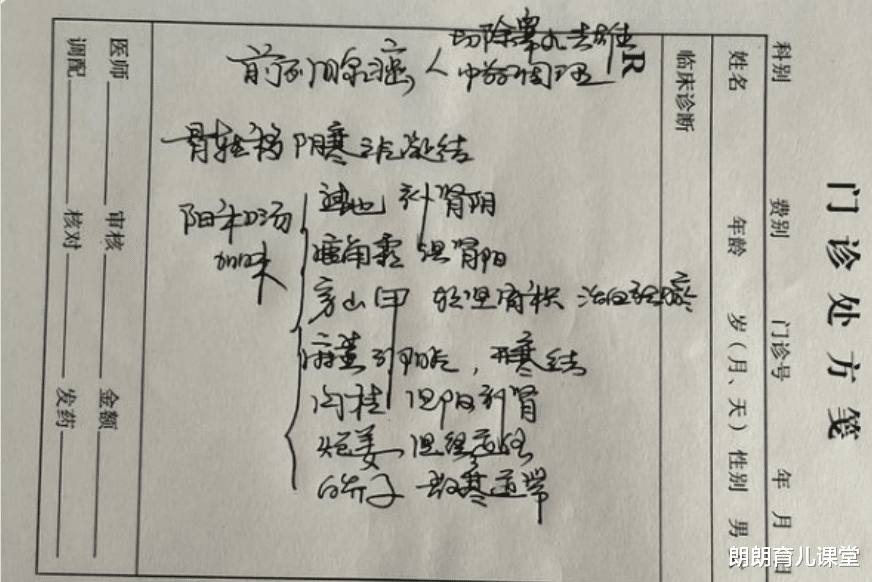 门诊处方笺
科别 费别 门诊号 年 月 日
姓名 年龄 岁（月、天） 性别 男
临床诊断
R
切除睾丸去雄
前列腺癌，人 中药调理
骨转移 阴寒 凝结
阳和汤
加味
熟地 补肾阴
鹿角霜 温肾阳
穿山甲
麻黄 引阳气，开寒结
肉桂 温阳 肾
炮姜 温经通络
白芥子 散寒 滞
医师 审核 金额
调配 核对 发药
朗朗育儿课堂